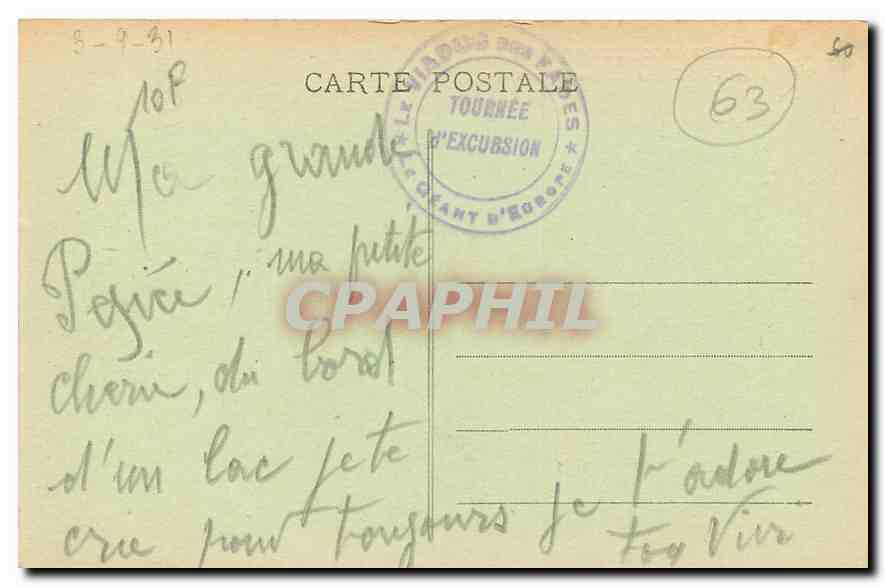 3-9-31
10F
50
CARTE POSTALE
LE VIADUC DES FADES
TOURNÉE
D'EXCURSION
★ LE GÉANT D'EUROPE ★
63
Ma grande
, ma petite
cherie, du bord
d'un lac je te
crie pour toujours je t'adore
CPAPHIL